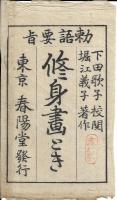 下田歌子校閲
堀江義子著作
勅語要旨
修身畫とき
東京春陽堂發行